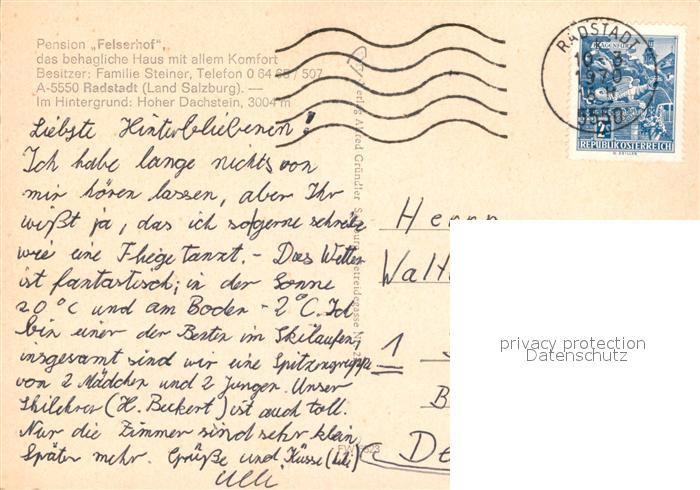 Pension „Felserhof",
das behagliche Haus mit allem Komfort
Besitzer: Familie Steiner, Telefon 0 64 65 / 507
A-5550 Radstadt (Land Salzburg). —
Im Hintergrund: Hoher Dachstein, 3004 m
Liebste Hinterbliebenen!
Ich habe lange nichts von
mir hören lassen, aber Ihr
wißt ja, das ich so gerne schreibe
wie eine Fliege tanzt. - Das Wetter
ist fantastisch; in der Sonne
20°C und am Boden - 2°C. Ich
bin einer der Besten im Skilaufen,
insgesamt sind wir eine Spitzengruppe
von 2 Mädchen und 2 Jungen. Unser
Skilehrer (H. Beckert) ist auch toll.
Nur die Zimmer sind sehr klein
Später mehr. Grüße und Küsse
Ulli
Verlag Alfred Gründler Getreidegasse
RADSTADT
1970
5550
KLAGENFURT
2S
REPUBLIK ÖSTERREICH
Herrn
Walt
1
B
De
privacy protection
Datenschutz